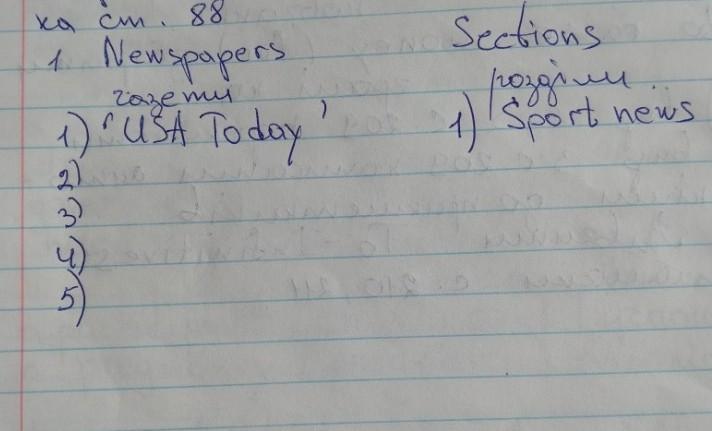 ха ст. 88
1 Newspapers Sections
газети розділи
1) 'USA Today' 1) Sport news
2)
3)
4)
5)